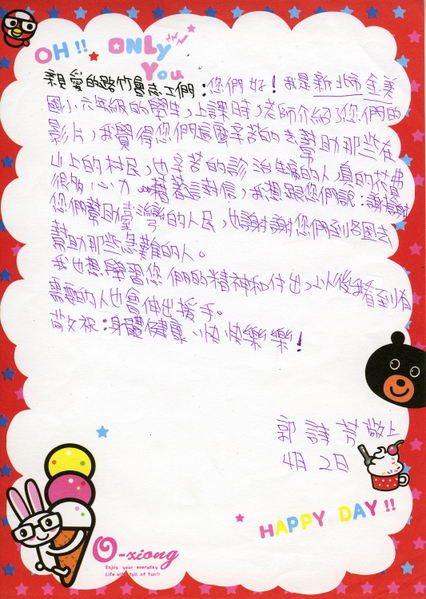 OH!! ONLY
You
親愛的路竹會志工們:您們好!我是新北市金美
國小六年級的學生,上課時,老師介紹了您們的
影片,我覺得您們很辛苦的去幫助那些在
山上的村民,也辛苦的診治生病的人,真的花費
很多心力,藉著這封信,我想跟您們說:謝謝
您們幫助臺灣的人民,也謝謝您們到各國去
幫助那些急難的人。
我也想學習您們的精神和付出,以後看到有
需要的人也會伸出援手。
敬祝:身體健康、快快樂樂!
郭詩芳敬上
4月2日
HAPPY DAY!!
O-xiong
Enjoy your everyday
Life with full of fun!!